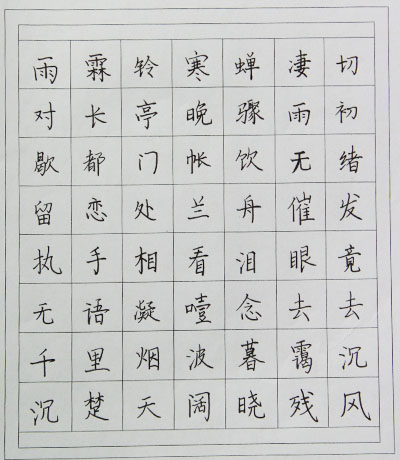 雨霖铃寒蝉凄切
对长亭晚骤雨初
歇都门帐饮无绪
留恋处兰舟催发
执手相看泪眼竟
无语凝噎念去去
千里烟波暮霭沉
沉楚天阔晓残风